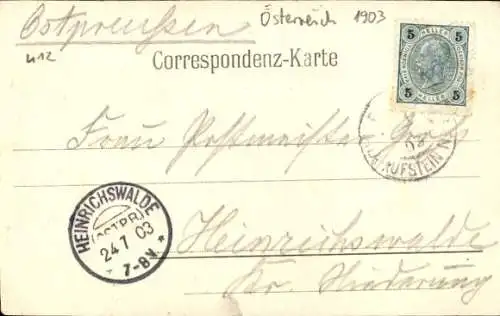 Ostpreußen
Österreich 1903
412
Correspondenz-Karte
5 5
HELLER
HELLER
5 5
Frau Postmeister
KUFSTEIN
HEINRICHSWALDE
(OSTPR)
24 7 03
7-8V.
Heinrichswalde
Kr. Niederung